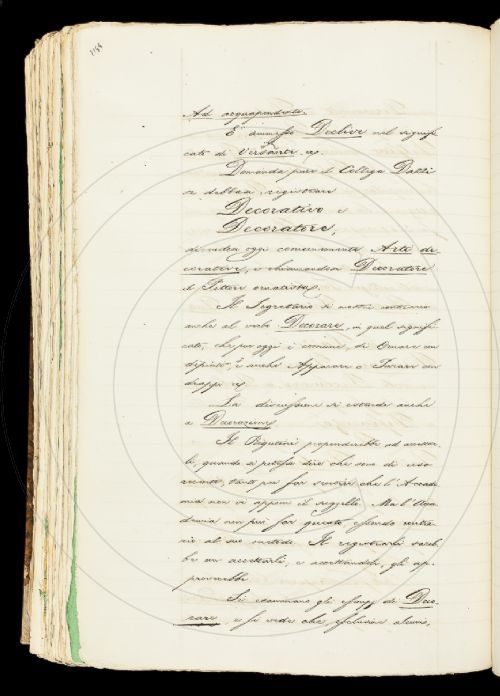 Ad acquapendente.
È ammesso Declive nel signifi
cato di Versante.
Domanda pure il Collega Dazzi
se debbasi registrare
Decorativo e
Decoratore,
oggi comunemente Arte de
corativa, e chiamandosi Decoratore
il Pittore ornatista.
Il Segretario
anche al verbo Decorare, in quel signifi
cato, che pur oggi è comune, di Ornare con
dipinti, e anche Apparare o Parare con
drappi
La discussione si estende anche
a Decorazione.
Il Rigutini propenderebbe ad accettar
le, quando si potesse dire che sono di uso
tanto per far sentire che l'Accade
mia non vi appone il suggello. Ma l'Acca
demia non può far questo essendo contra
rio al suo metodo. Il registrarli sareb
be un accettarli, e accettandoli, gli ap
proverebbe
Si esaminano gli esempj di Deco
rare, e si vede che, esclusone alcuno,